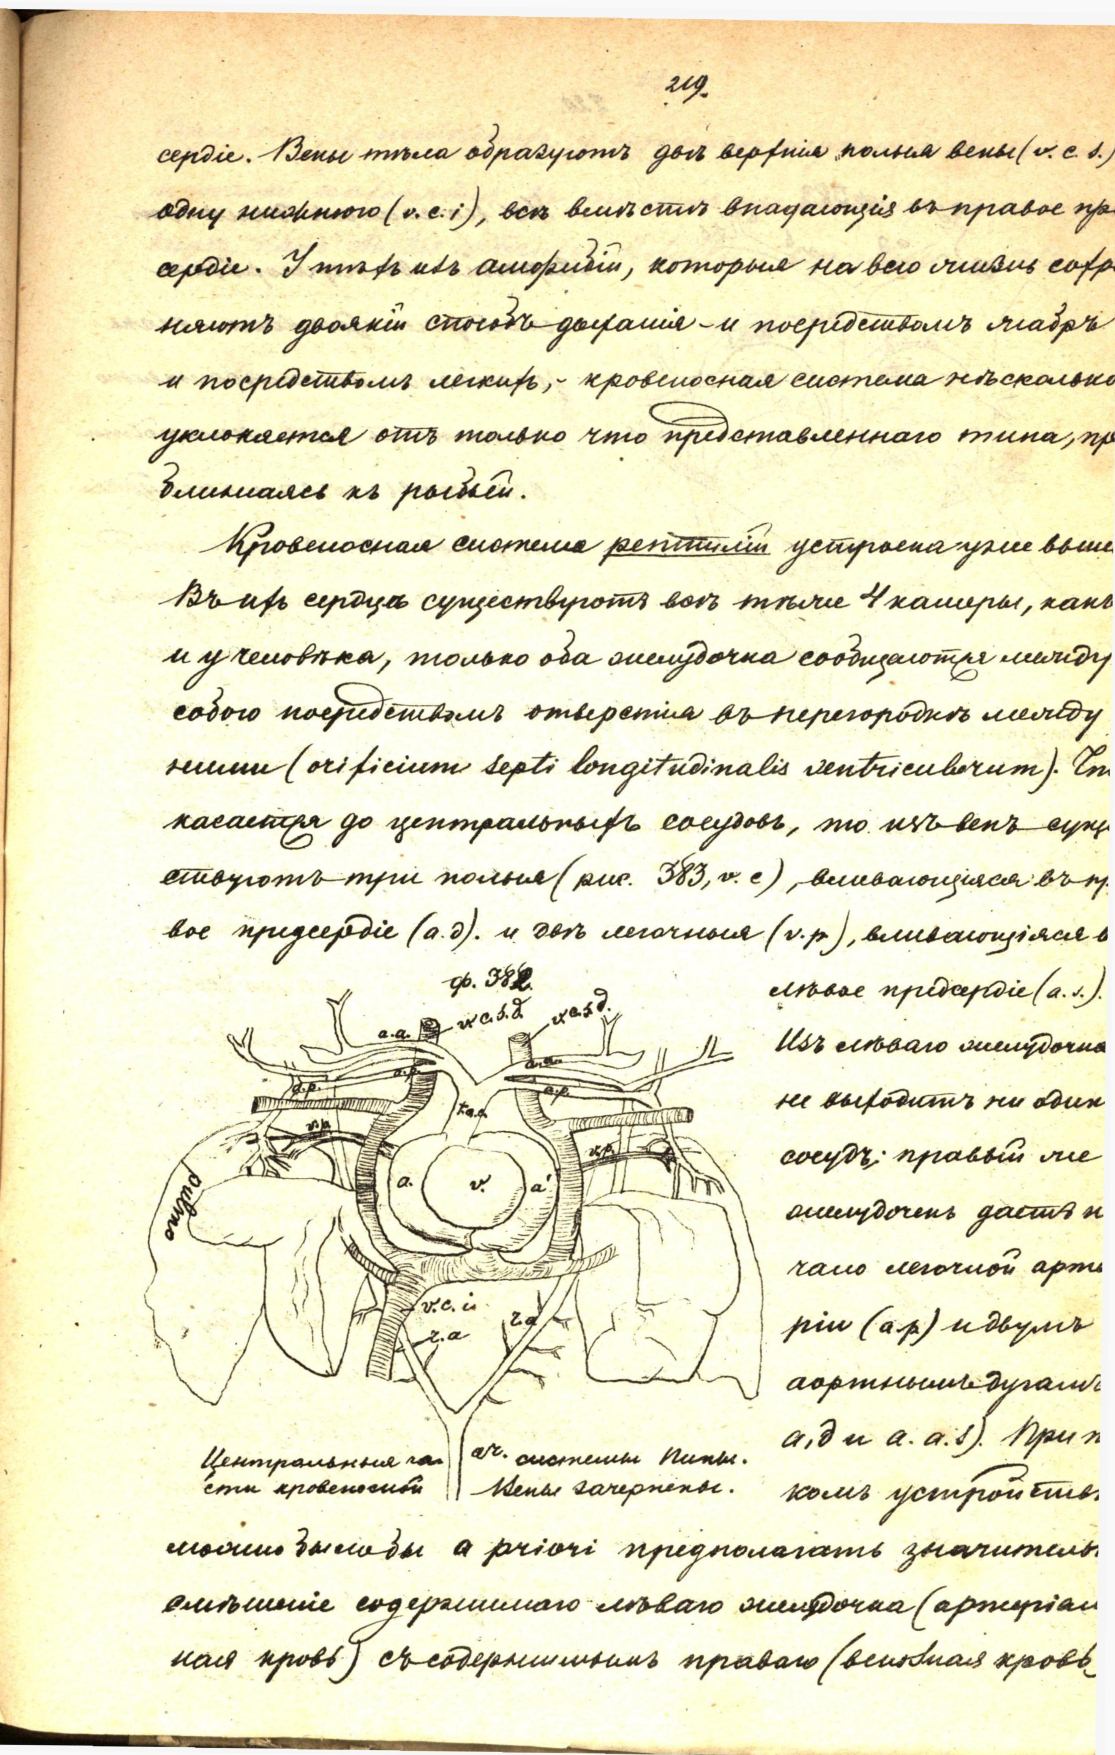 219.
сердіе. Вены тѣла образуютъ двѣ верхнія полыя вены (v. c. s.)
одну нижнюю (v. c. i), всѣ вмѣстѣ впадающія въ правое пр
сердіе. У тѣхъ изъ амфибій, которыя на всю жизнь сохр
няютъ двоякій способъ дыханія – и посредствомъ жабръ
и посредствомъ легкихъ, – кровеносная система нѣсколько
уклоняется отъ только что представленнаго типа, пр
ближаясь къ рыбьей.
Кровеносная система рептилій устроена уже выше
Въ ихъ сердцѣ существуютъ всѣ тѣже 4 камеры, какъ
и у человѣка, только оба желудочка сообщаются между
собою посредствомъ отверстія въ перегородкѣ между
ними (orificium septi longitudinalis ventriculorum). Чт
касается до центральныхъ сосудовъ, то изъ венъ сущ
ствуютъ три полыя (рис. 383, v. c), вливающіяся въ пр
вое предсердіе (a. d). и двѣ легочныя (v. p), вливающіяся в
ф. 382.
v. c. s. d.
v. c. s. d.
a. a.
a. a.
a. p.
a. p.
a. p.
t. a. a.
v. p.
v. p.
a.
v.
a'
pulmo
v. c. i.
r. a
r. a
Центральныя ча-
сти кровеносной
ао. системы Пипы.
Вены зачернены.
лѣвое предсердіе (a. s.).
Изъ лѣваго желудочка
не выходитъ ни один
сосудъ; правый же
желудочекъ даетъ н
чало легочной арте
ріи (a. p) и двумъ
аортнымъ дугамъ
a, d и a. a. s). При т
комъ устройств
можно было бы a priori предполагать значитель
смѣшеніе содержимаго лѣваго желудочка (артеріал
ная кровь) съ содержимымъ праваго (венозная кровь